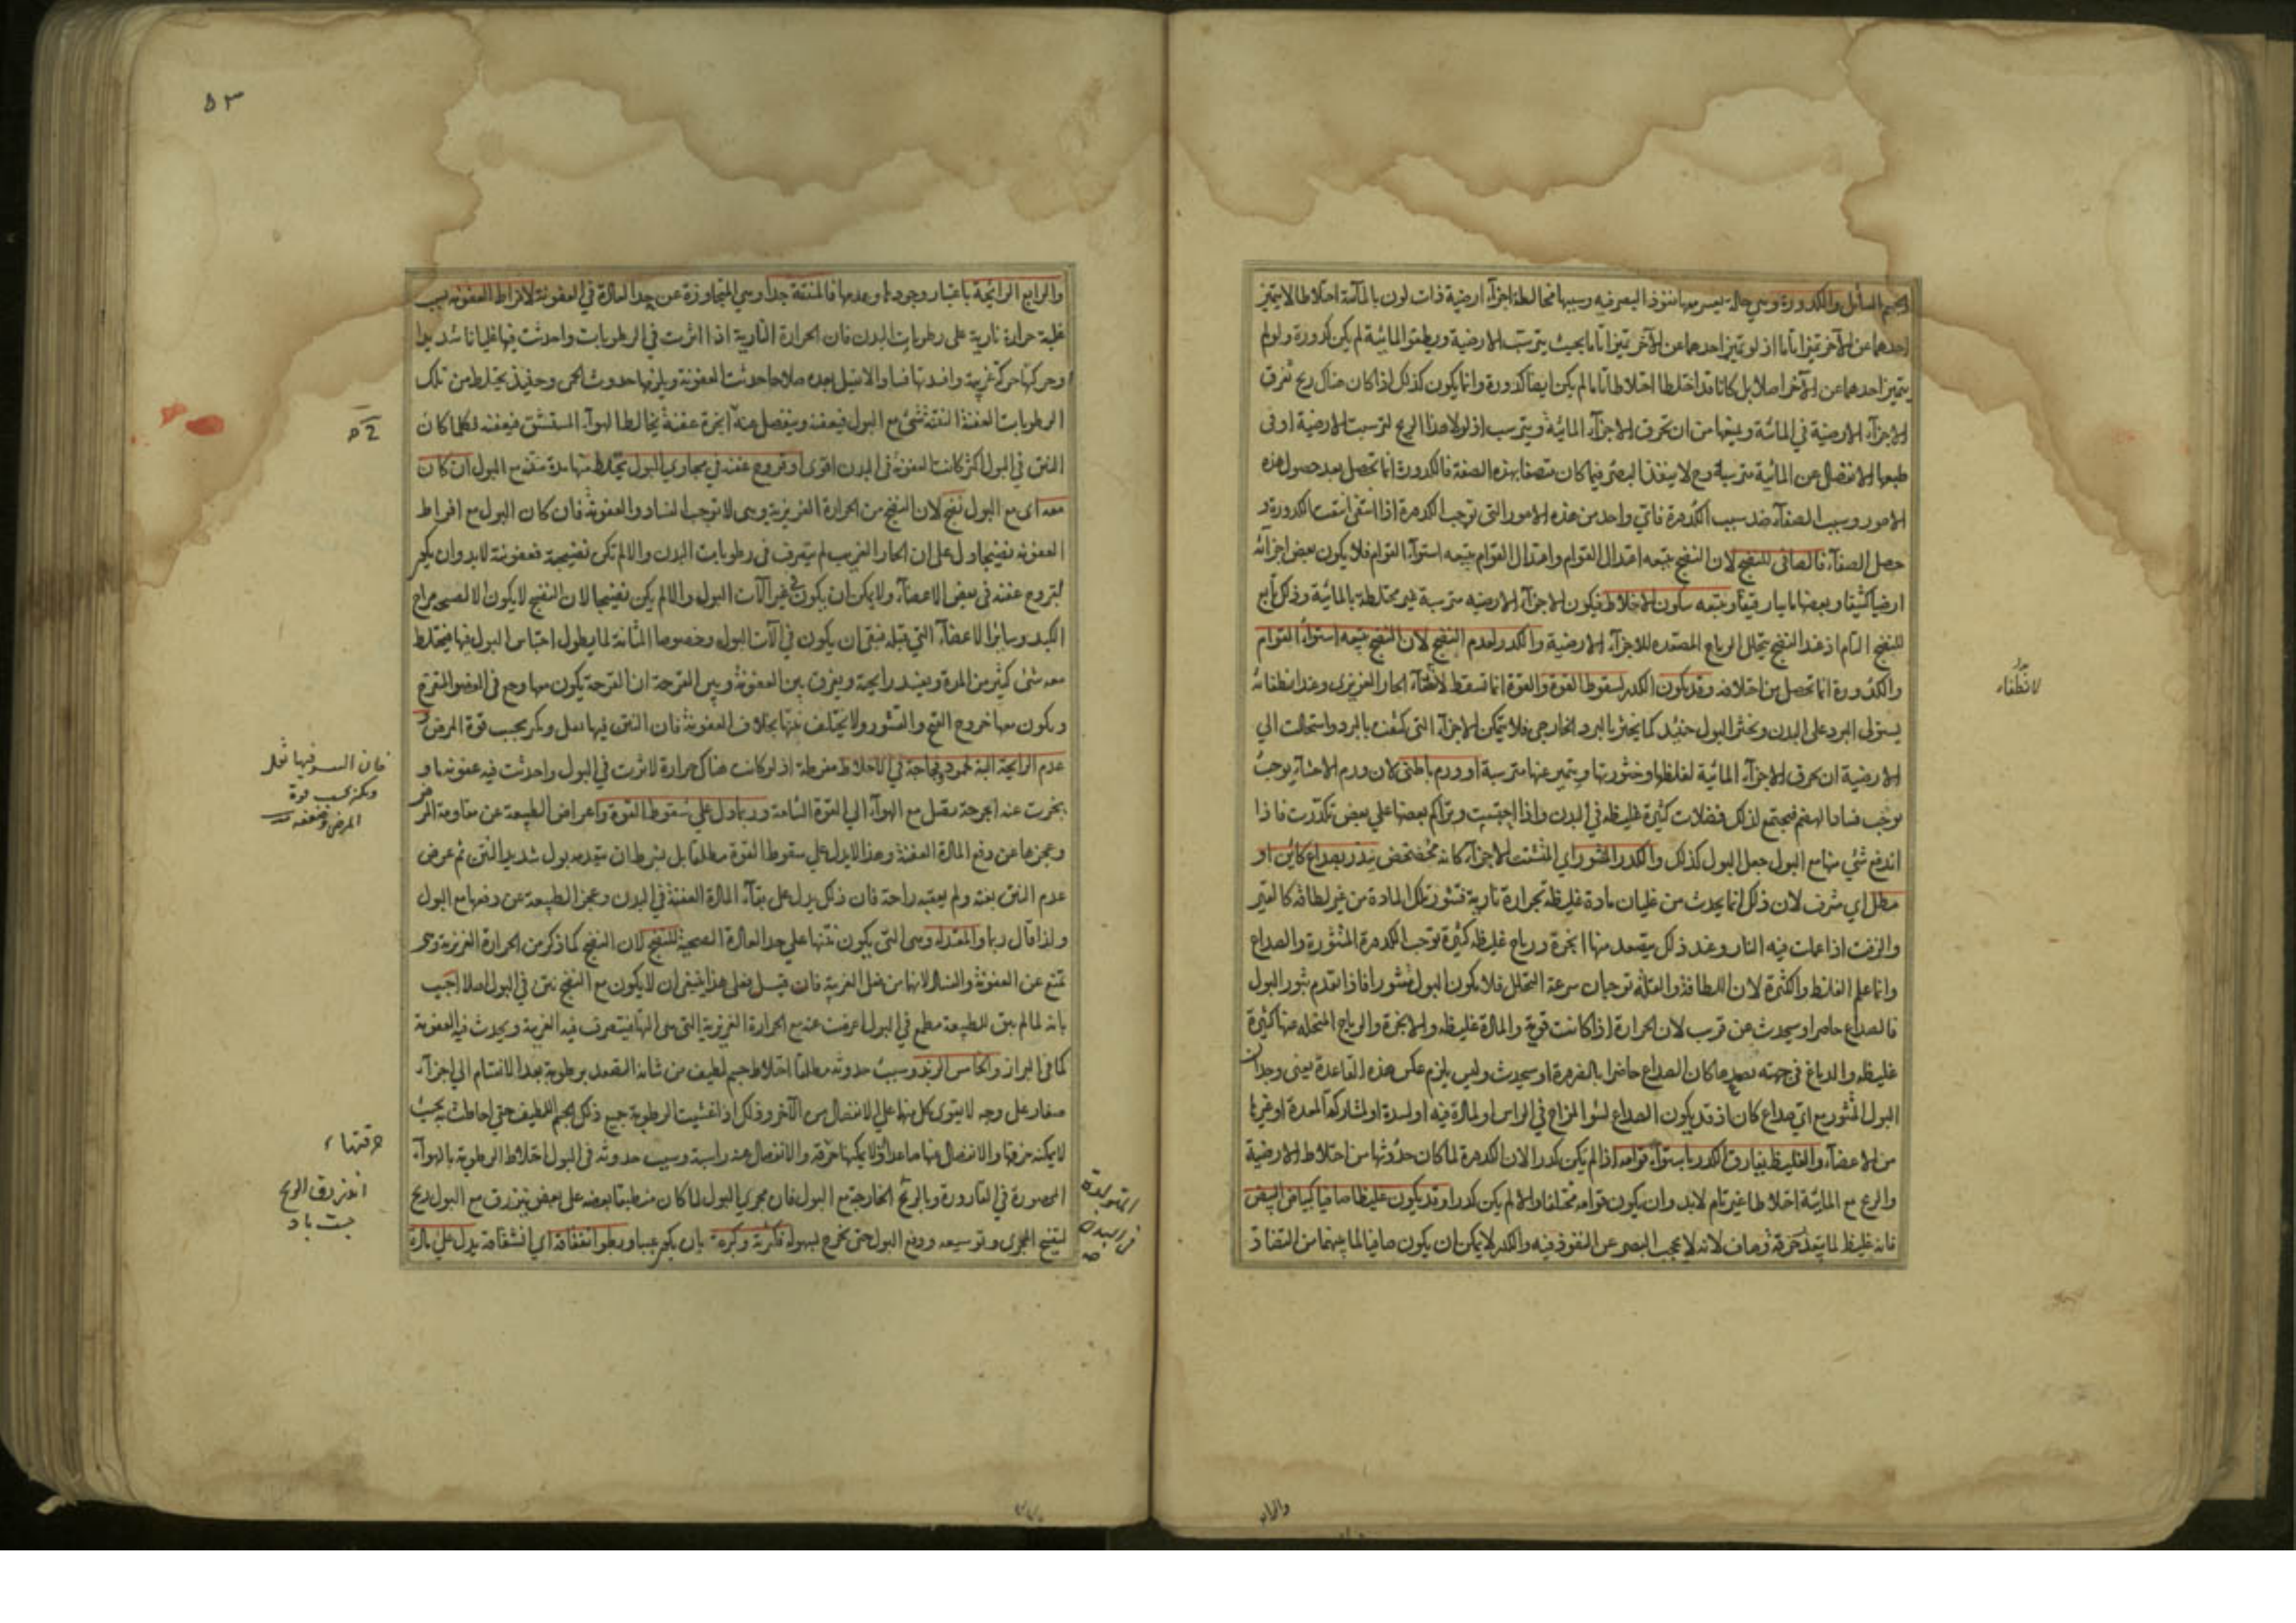 الجسم السائل والكدورة وهي حالة يعسر معها نفوذ البصر فيه وسببها مخالطة اجزآء ارضية ذات لون بالمآئية اختلاطا لا يتميز
احدهما عن الآخر تميزا تاما اذ لو تميز احدهما عن الآخر تميزا تاما بحيث يترسب الارضية ويطفو المائية لم يكن كدورة ولو لم
يتميز احدهما عن الآخر اصلا بل كانا قد اختلطا اختلاطا تاما لم يكن ايضا كدورة وانما يكون كذلك اذا كان هناك ريح تفرق
الاجزآء الارضية في المائية ويمنعها من ان تخرق الاجزآء المائية ويترسب اذ لولا هذا الريح لترسبت الارضية او في
طبعها الانفصال عن المائية مترسبة وح لا ينفذ البصر فيما كان متصفا بهذه الصفة فالكدورة انما تحصل بعد حصول هذه
الامور وسبب الصفآء ضد سبب الكدرة فاي واحد من هذه الامور التي توجب الكدرة اذا انتفى انتفت الكدورة و
حصل الصفآء فالصافي للنضج لان النضج يتبعه اعتدال القوام واعتدال القوام يتبعه استوآء القوام فلا يكون بعض اجزائه
ارضيا كثيفا وبعضها مايا رقيقا ويتبعه سكون الاخلاط فيكون الاجزآء الارضيه مترسبة غير مختلطة بالمائية وذلك تابع
للنضج التام اذ عند النضج يتحلل الرياح المصعده للاجزآء الارضية والكدر لعدم النضج لان النضج يتبعه استوآء القوام
والكدورة انما تحصل من اختلافه وقد يكون الكدر لسقوط القوة والقوة انما تسقط لانطفآء الحار الغريزي وعند انطفائه
يستولى البرد على البدن ويخثر البول حينئذ كما يخثر بالبرد الخارجي فلا يتمكن الاجزآء التي كثفت بالبرد واستحالت الي
الارضية ان يخرق الاجزآء المائية لغلظها وخثورتها ويتميز عنها مترسبة او ورم باطني لان ورم الاحشآء يوجب
يوجب فساد الهضم فيجتمع لذلك فضلات كثيرة غليظه في البدن واذا احتبست وتراكم بعضها علي بعض تكدرت فاذا
اندفع شئ منها مع البول جعل البول كذلك والكدر المثور اي المتشتت الاجزآء كانه مخضخض ينذر بصداع كائن او
مطل اي مشرف لان ذلك انما يحدث من غليان مادة غليظه بحرارة نارية فتثور تلك المادة من غير لطافة كالقير
والزفت اذا عملت فيه النار وعند ذلك يتصعد منها ابخرة ورياح غليظه كثيرة توجب الكدرة المثورة والصداع
وانما علم الغلظ والكثرة لان اللطافة والقلة توجبان سرعة التحلل فلا يكون البول مثورا فاذا تقدم ثور البول
فالصداع حاصر او سيحدث عن قرب لان الحرارة اذا كانت قوية والمادة غليظه والابخرة والرياح المتحلله منها كثيرة
غليظه والدماغ في جهة تصعدها كان الصداع حاضرا بالضرورة او سيحدث وليس يلزم عكس هذه القاعدة يعنى وجدان
البول المثور مع اي صداع كان اذ قد يكون الصداع لسوء المزاج في الراس او لمادة فيه او لسدة او لمشاركة المعدة او غيرها
من الاعضآء والغليظ يفارق الكدر باستوآء قوامه اذا لم يكن كدرا لان الكدرة لما كان حدوثها من اختلاط الارضية
والريح مع المائية اختلاطا غير تام لابد وان يكون قوامه مختلفا والا لم يكن كدرا وقد يكون غليظا صافيا كبياض البيض
فانه غليظ لما يتعذر خرقه وصاف لانه لا يحجب البصر عن النفوذ فيه والكدر لا يمكن ان يكون صافيا لما بينهما من التضاد
لانطفاء
والرابع
٥٢
والرابع الرائحة باعتبار وجودها وعدمها فالمنتنة جدا وهي المتجاوزة عن حد العادة في العفونة لافراط العفونة بسبب
غلبة حرارة نارية على رطوبات البدن فان الحرارة النارية اذا اثرت في الرطوبات واحدثت فيها غليانا شديدا
وحركتها حركة غريبة وافسدتها فسادا لا يقبل بعده صلاحا حدثت العفونة ويلزمها حدوث الحمى وحينئذ يختلط من تلك
الرطوبات العفنة النتنة شئ مع البول فيعفنه وينفصل عنه ابخرة عفنة يخالط الهوآء المستنشق فيعفنه فكلما كان
النتن في البول اكثر كانت العفونة في البدن اقوى او قروح عفنة في مجاري البول يختلط منها مدة منتنة مع البول ان كان
معه اى مع البول نضج لان النضج من الحرارة الغريزية وهي لا توجب الفساد والعفونة فان كان البول مع افراط
العفونة نضيجا دل على ان الحار الغريب لم يتصرف في رطوبات البدن والا لم تكن نضيجة فعفونته لابد وان يكون
لقروح عفنة في بعض الاعضآء ولا يمكن ان يكون في غير آلات البول والا لم يكن نضيجا لان النضج لا يكون الا لصحة مزاج
الكبد وساير الاعضآء التي قبله فبقى ان يكون في آلات البول وخصوصا المثانة لما يطول احتباس البول فيها فيختلط
معه شئ كثير من المدة ويفسد رايحته ويفرق بين العفونة وبين القرحة ان القرحة يكون معها وجع في العضو المتقرح
ويكون معها خروج القيح والقشور ولا يختلف نتنها بخلاف العفونة فان النتن فيها يقل ويكثر بحسب قوة المرض و
عدم الرائحة البتة لجمود وفجاجة في الاخلاط مفرطة اذ لو كانت هناك حرارة لاثرت في البول واحدثت فيه عفونة ما و
بخرت عنه ابخرة تنتقل مع الهوآء الي القوة الشامة وربما دل علي سقوط القوة واعراض الطبيعة عن مقاومة المرض
وعجزها عن دفع المادة العفنة وهذا لا يدل علي سقوط القوة مطلقا بل بشرط ان يتقدمه بول شديد النتن ثم عرض
عدم النتن بغتة ولم يعقبه راحة فان ذلك يدل على بقآء المادة العفنة في البدن وعجز الطبيعة عن دفعها مع البول
ولذا قال ربما والمعتدلة وهي التي يكون نتنها علي حد العادة الصحية للنضج لان النضج كما ذكر من الحرارة الغريزية وهي
تمنع عن العفونة والفساد لانها من فعل الغريبة فان قيل فعلى هذا ينبغي ان لا يكون مع النضج نتن في البول اصلا اجيب
بانه لما لم يبق للطبيعة مطمع في البول اعرضت عنه مع الحرارة الغريزية التي هي آلتها فيتصرف فيه الغريبة ويحدث فيه العفونة
كما في البراز والخامس الزبد وسبب حدوثه مطلقا اختلاط جسم لطيف من شانه التصعد برطوبة بعد الانقسام الي اجزآء
صغار على وجه لا يقوى كل منهما علي الانفصال من الآخر وذلك اذا تشبثت الرطوبة جميع ذلك الجسم اللطيف حتى احاطت به بحيث
لا يمكنه خرقها والانفصال عنها صاعدا ولا يمكنها خرقه والانفصال عنه راسبة وسبب حدوثه في البول اختلاط الرطوبة بالهوآء
المحصورة في القارورة وبالريح الخارجة مع البول فان مجرى البول لما كان منطبقا بعضه على بعض ينزرق مع البول ريح
لتفتح المجرى وتوسيعه ودفع البول حتى يخرج بسهولة فكثرته وكبره بان يكون عببا وبطو انفقائه اي انشقاقه يدل علي مادة
فان النتن فيها يقل
ويكثر بحسب قوة
المرض وضعفه
خرقتها
انزرق الريح
المتولدة
في البدن